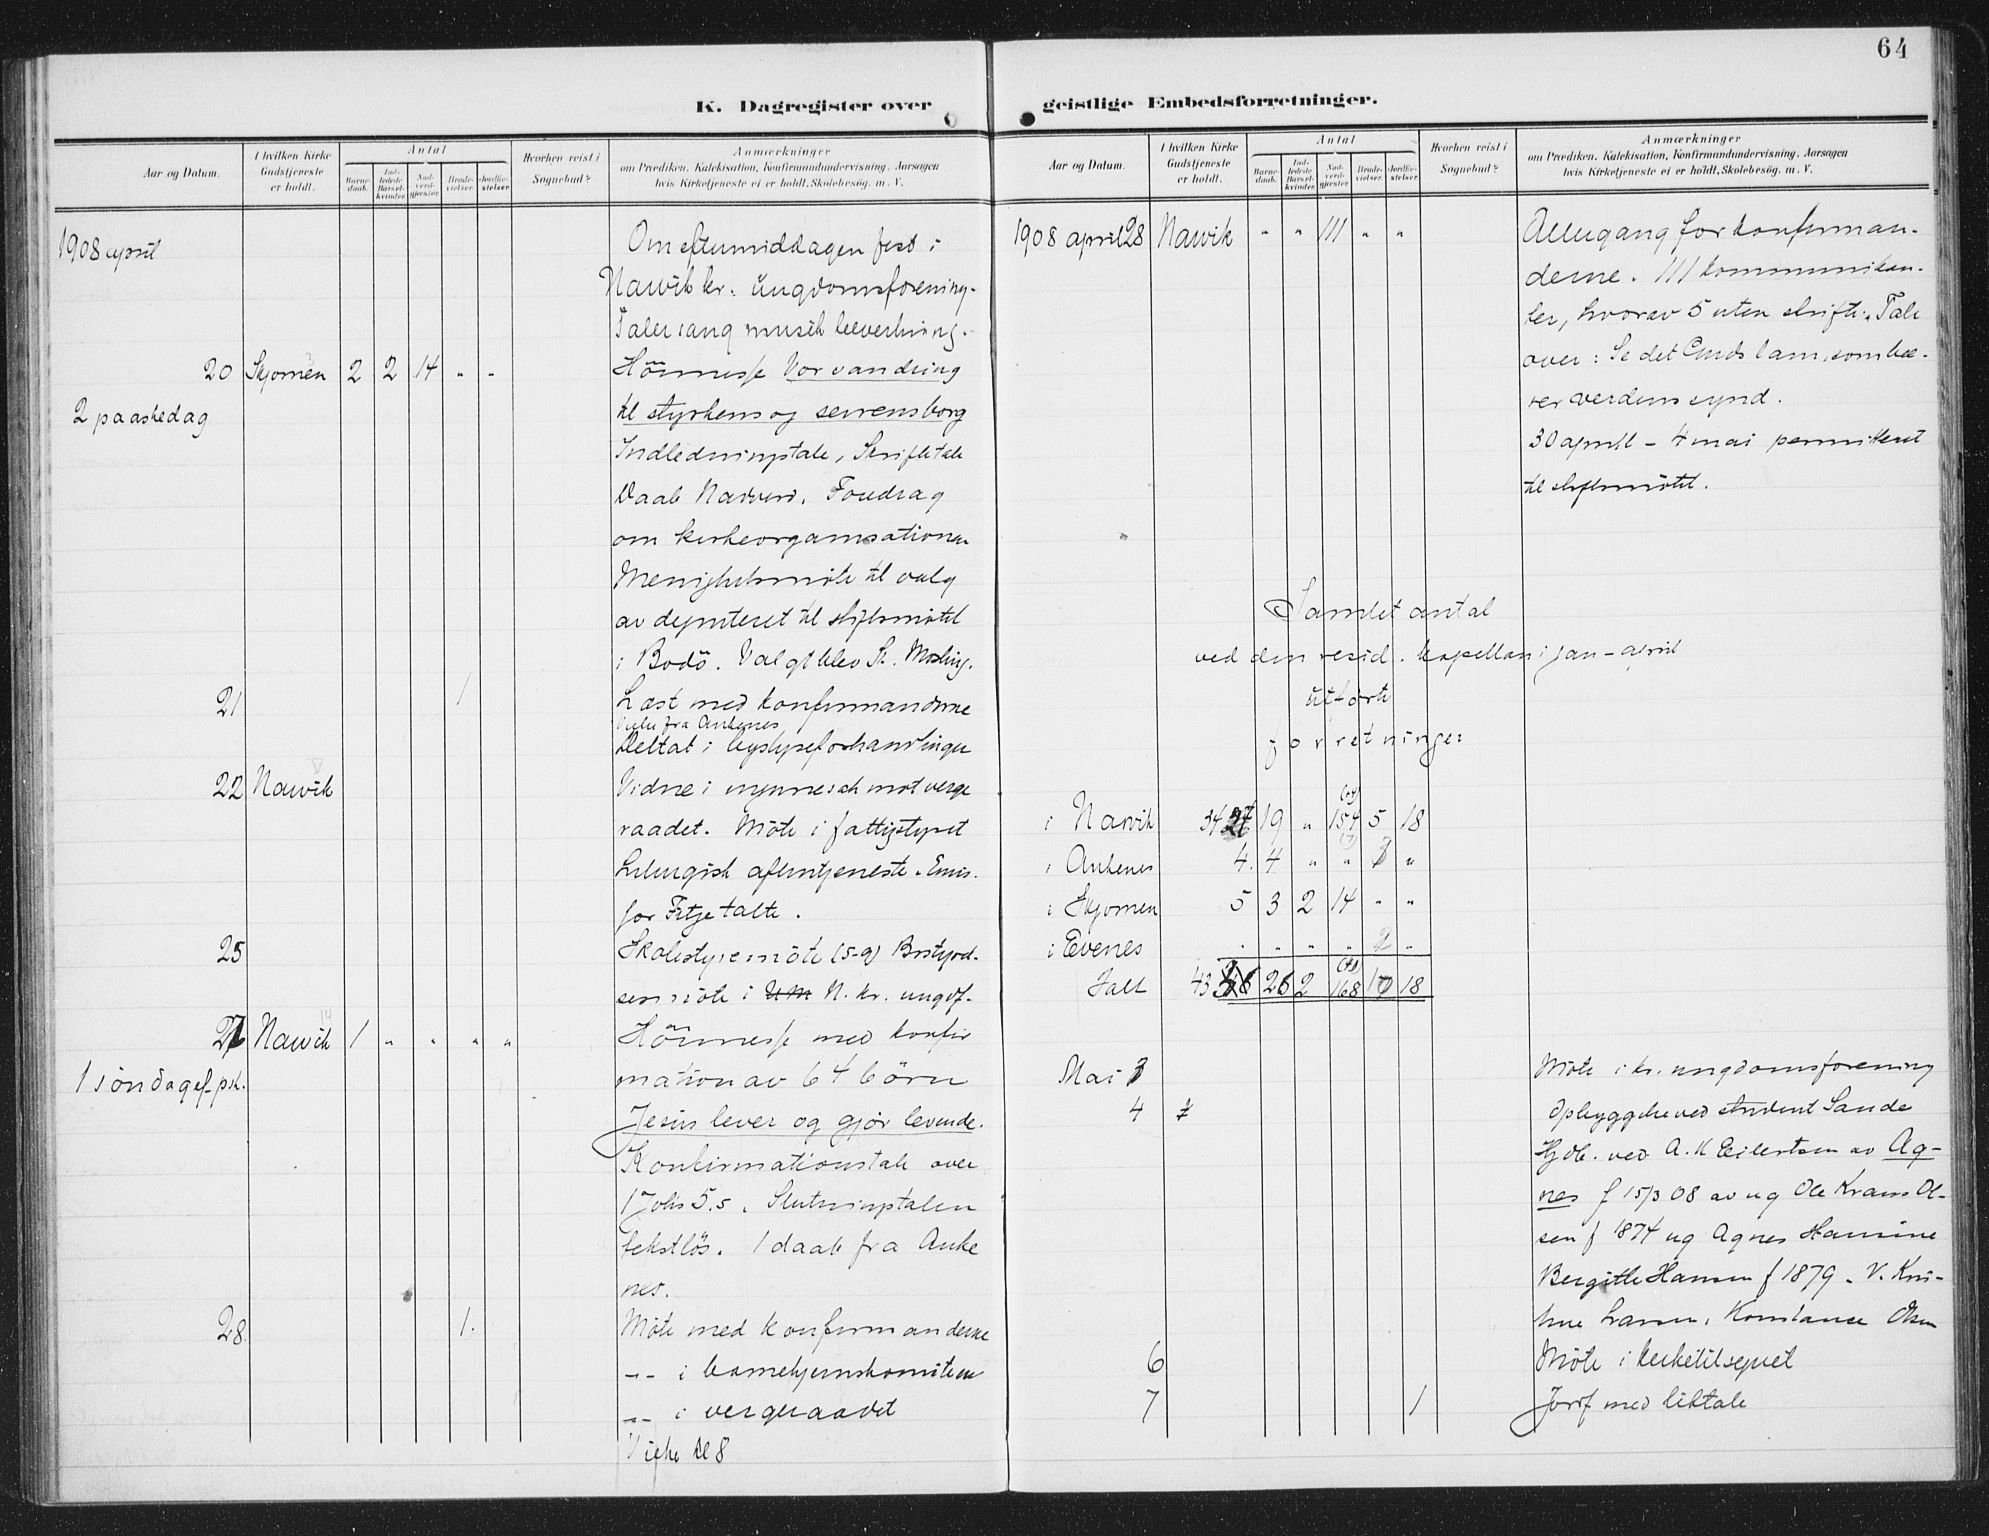 64
K. Dagregister over geistlige Embedsforretninger.
Aar og Datum.
I hvilken Kirke Gudstjeneste er holdt.
Antal
Barne-daab.
Ind-ledede Barsel-kvinder.
Nad-verd-gjæster.
Brude-vielser.
Jordfæ-stelser.
Hvorhen reist i Sognebud?
Anmærkninger
om Prædiken, Katekisation, Konfirmandundervisning, Aarsagen
hvis Kirketjeneste ei er holdt, Skolebesøg. m. V.
1908 april
Om eftermiddagen fest i
Narvik kr. ungdomsforening.
Taler sang musik bevertning.
20 Skjomen 2 2 14 " "
Höimesse Vor vandring
2 paaskedag
til styrkens og seirens borg
Indledningstale, Skriftetale
Daab Nadverd. Foredrag
om kirkeorganisationen
Menighetsmöte til valg
av deputeret til stiftsmötet
i Bodö. Valgt blev
21 1
Læst med konfirmanderne
Vielse fra Ankenes
Deltat i bystyreforhandlinger
22 Narvik
Vidne i mot verge
raadet. Möte i fattigstyret
Liturgisk aftentjeneste. Emis.
for Fitje talte.
25
Skolestyremöte (5-9) Bestyrel-
sesmöte i N. kr. ungdf.
Narvik 1 " " " "
Höimesse med konfir
1 söndag ef. psk.
mation av 64 börn
Jesus lever og gjör levende.
Konfirmationstale over
1 Johs 5.5. Slutningstalen
tekstlös. 1 daab fra Anke
nes.
28 1.
Möte med konfirmanderne
-"- i barnehjemskomiteen
-"- i vergeraadet
Vielse kl 8
Aar og Datum.
I hvilken Kirke Gudstjeneste er holdt.
Antal
Barne-daab.
Ind-ledede Barsel-kvinder.
Nad-verd-gjæster.
Brude-vielser.
Jordfæ-stelser.
Hvorhen reist i Sognebud?
Anmærkninger
om Prædiken, Katekisation, Konfirmandundervisning, Aarsagen
hvis Kirketjeneste ei er holdt, Skolebesøg. m. V.
1908 april 28 Narvik " " 111 " "
Altergang for konfirman-
derne. 111 kommunikan-
ter, hvorav 5 uten skrifte. Tale
over: Se det Guds lam, som bæ-
rer verdens synd.
30 april - 4 mai permitteret
til stiftsmötet.
Samlet antal
ved den resid. kapellan i jan - april
utförte
forretninger
i Narvik 34 19 " 154 5 18
i Ankenes 4. 4 " " 3 "
i Skjomen 5 3 2 14 " "
i Evenes " " " " 2 "
Ialt 43 26 2 168 10 18
Mai 3
Möte i kr. ungdomsforening
4
Opbyggelse ved student Sande
Hjdb. ved A. K Eilertsen av Ag-
nes f 15/3 08 av ug Ole Krans Ol-
sen f 1874 ug Agnes Hansine
Bergitte Hansen f 1879. V. Kris-
tine Larsen, Konstanse Olsen
6
Möte i kirketilsynet
7 1
Jordf med liktale